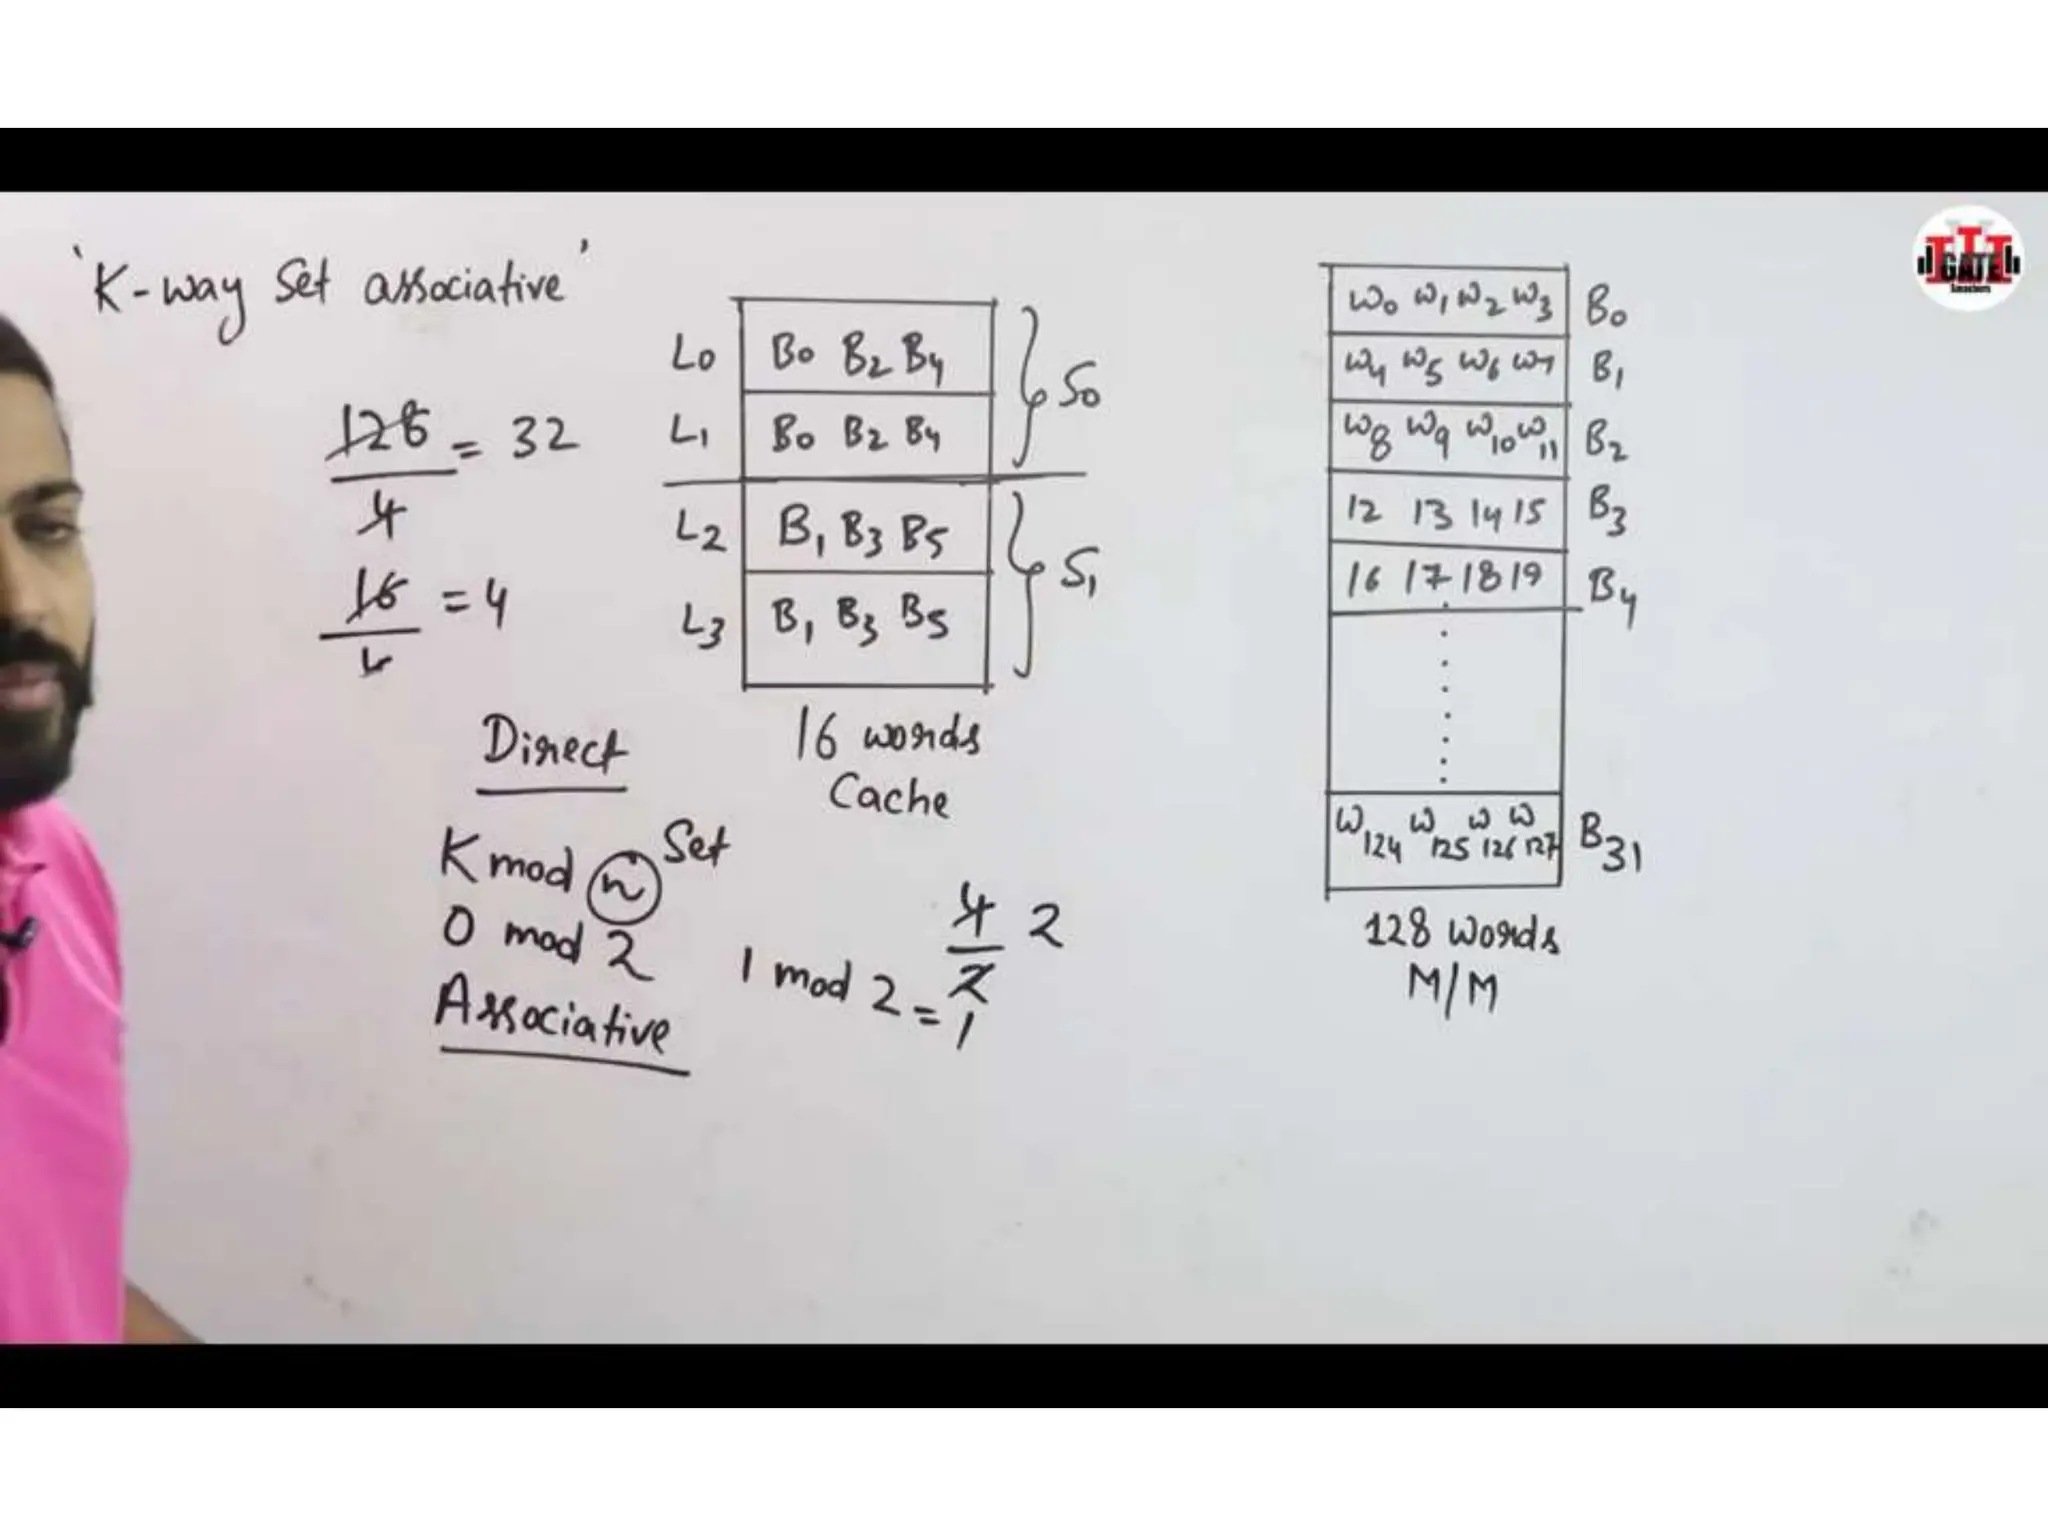 'K-way Set associative'
128 = 32
4
16 = 4
4
L0 B0 B2 B4
L1 B0 B2 B4
S0
L2 B1 B3 B5
L3 B1 B3 B5
S1
16 words
Cache
Direct
K mod n Set
0 mod 2
1 mod 2 = 1
4 2
2
Associative
W0 W1 W2 W3 B0
W4 W5 W6 W7 B1
W8 W9 W10 W11 B2
12 13 14 15 B3
16 17 18 19 B4
W124 W125 W126 W127 B31
128 Words
M/M
GATE